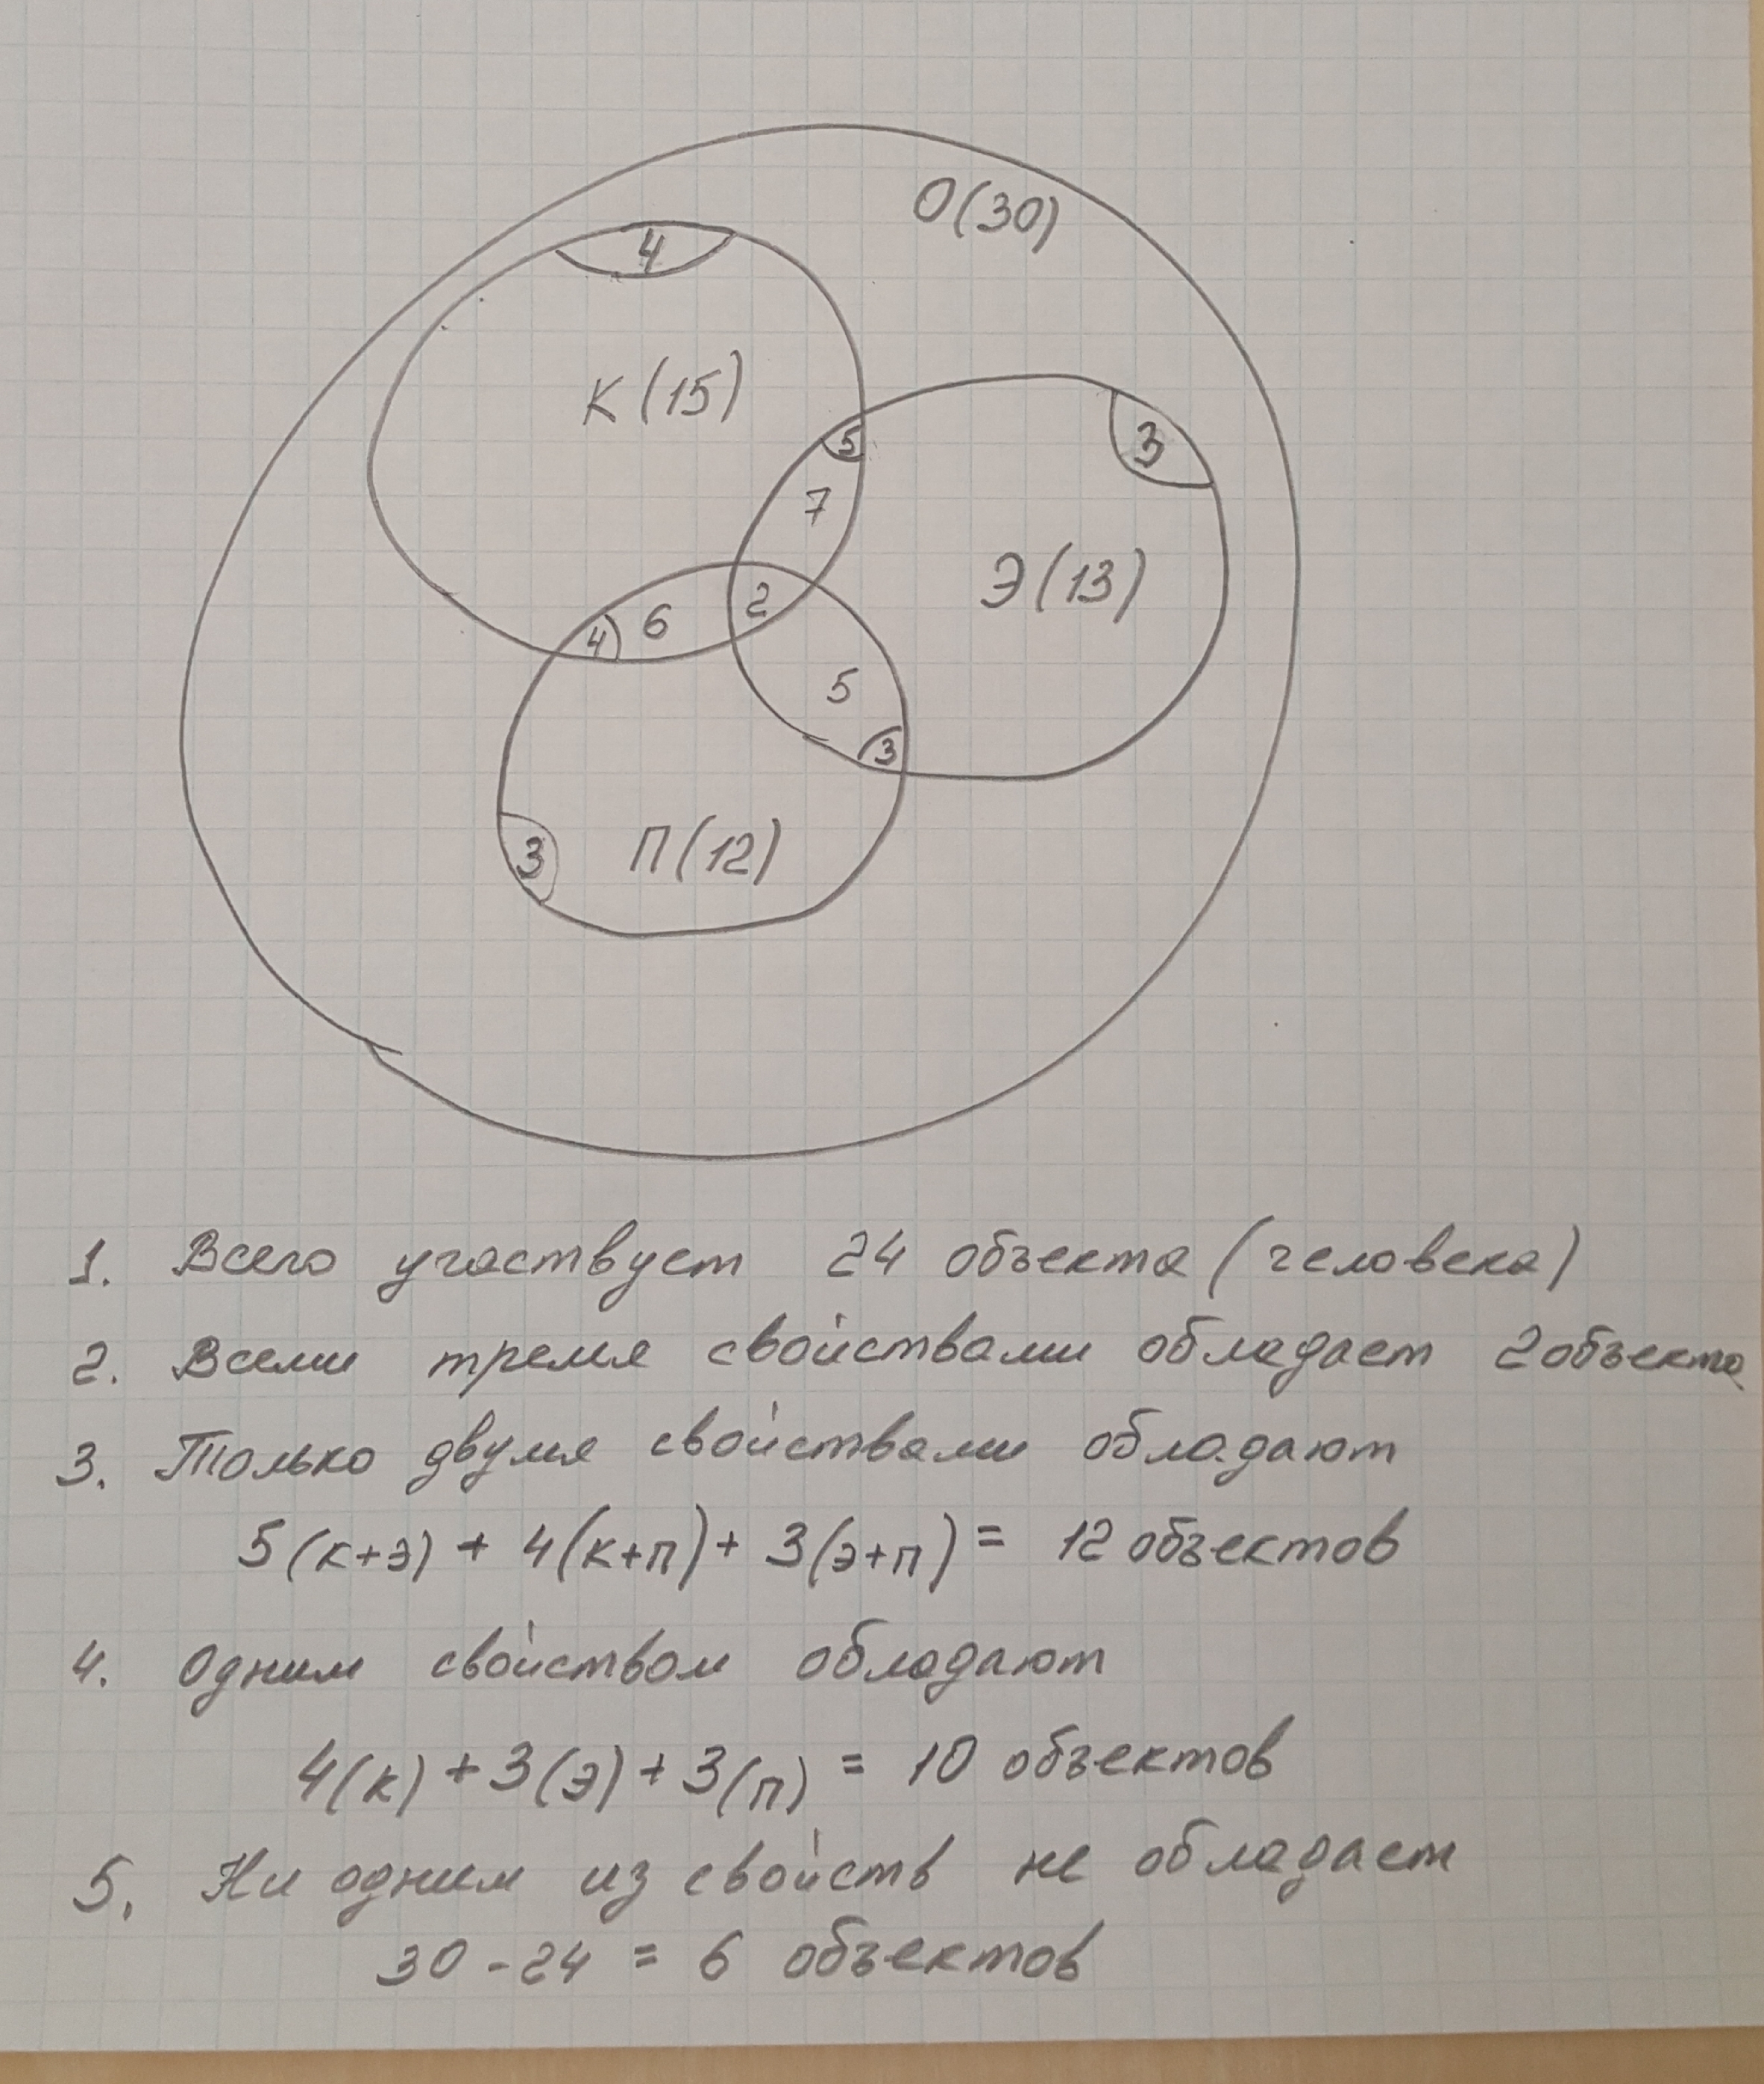 О(30)
4
К(15)
5
3
7
Э(13)
2
6
4
5
3
П(12)
3
1. Всего участвует 24 объекта (человека)
2. Всеми тремя свойствами обладает 2 объекта
3. Только двумя свойствами обладают
5(К+Э) + 4(К+П) + 3(Э+П) = 12 объектов
4. Одним свойством обладают
4(К) + 3(Э) + 3(П) = 10 объектов
5. Ни одним из свойств не обладает
30 - 24 = 6 объектов